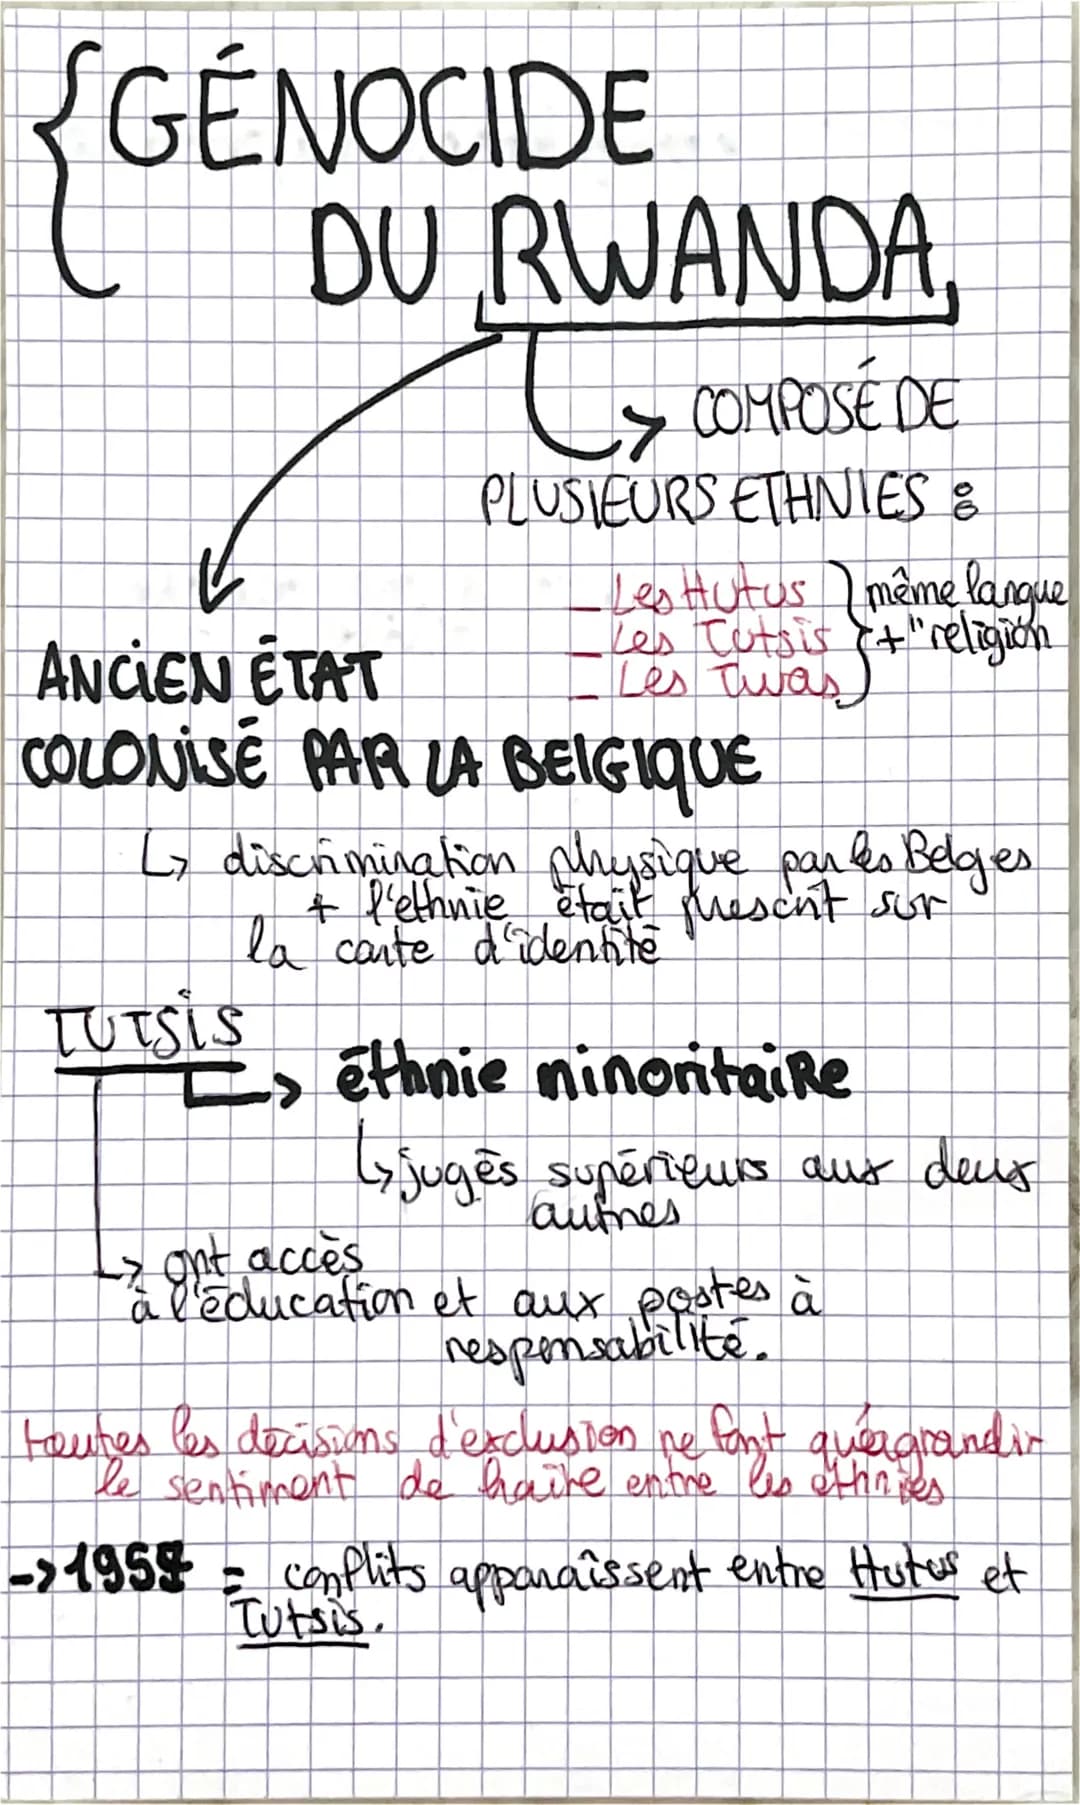 GÉNOCIDE
DU RWANDA
COMPOSÉ DE
PLUSIEURS ETHNIES :
- Les Hutus
- Les Tutsis
- Les Twas
même langue
+ " religion
ANCIEN ÉTAT
COLONISÉ PAR LA BELGIQUE
↳ discrimination physique par les Belges
+ l'ethnie était présent sur
la carte d'identité
TUTSIS
→ éthnie minoritaire
↳ jugés supérieurs aux deux
autres
↳ ont accès
à l'éducation et aux postes à
responsabilité.
toutes les décisions d'exclusion ne font qu'agrandir
le sentiment de haine entre les ethnies
→ 1959 = conflits apparaîssent entre Hutus et
Tutsis.